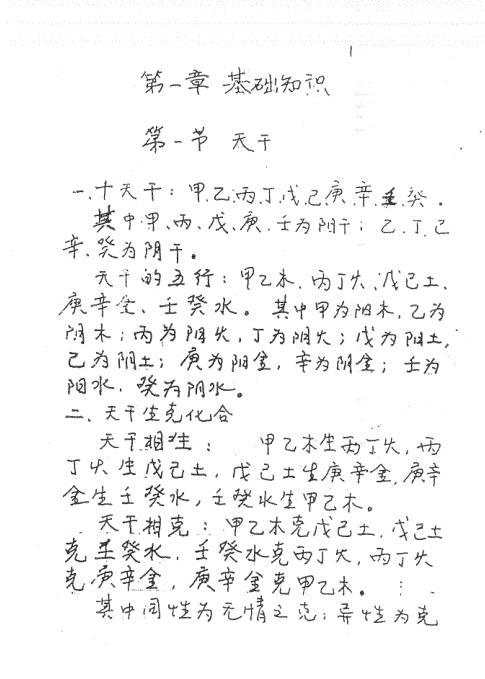 1
第一章 基础知识
第一节 天干
一、十天干：甲、乙、丙、丁、戊、己、庚、辛、壬、癸．
其中甲、丙、戊、庚、壬为阳干；乙、丁、己
辛、癸为阴干。
天干的五行：甲乙木、丙丁火、戊己土、
庚辛金、壬癸水。其中甲为阳木，乙为
阴木；丙为阳火，丁为阴火；戊为阳土，
己为阴土；庚为阳金，辛为阴金；壬为
阳水，癸为阴水。
二、天干生克化合
天干相生： 甲乙木生丙丁火，丙
丁火生戊己土，戊己土生庚辛金，庚辛
金生壬癸水，壬癸水生甲乙木。
天干相克：甲乙木克戊己土，戊己土
克壬癸水，壬癸水克丙丁火，丙丁火
克庚辛金，庚辛金克甲乙木。
其中同性为无情之克；异性为克